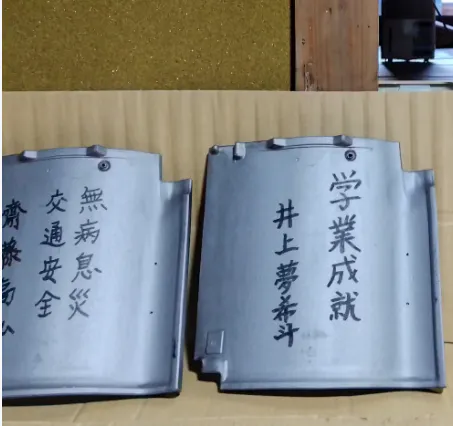 学業成就
井上夢希斗
無病息災
交通安全
齋藤